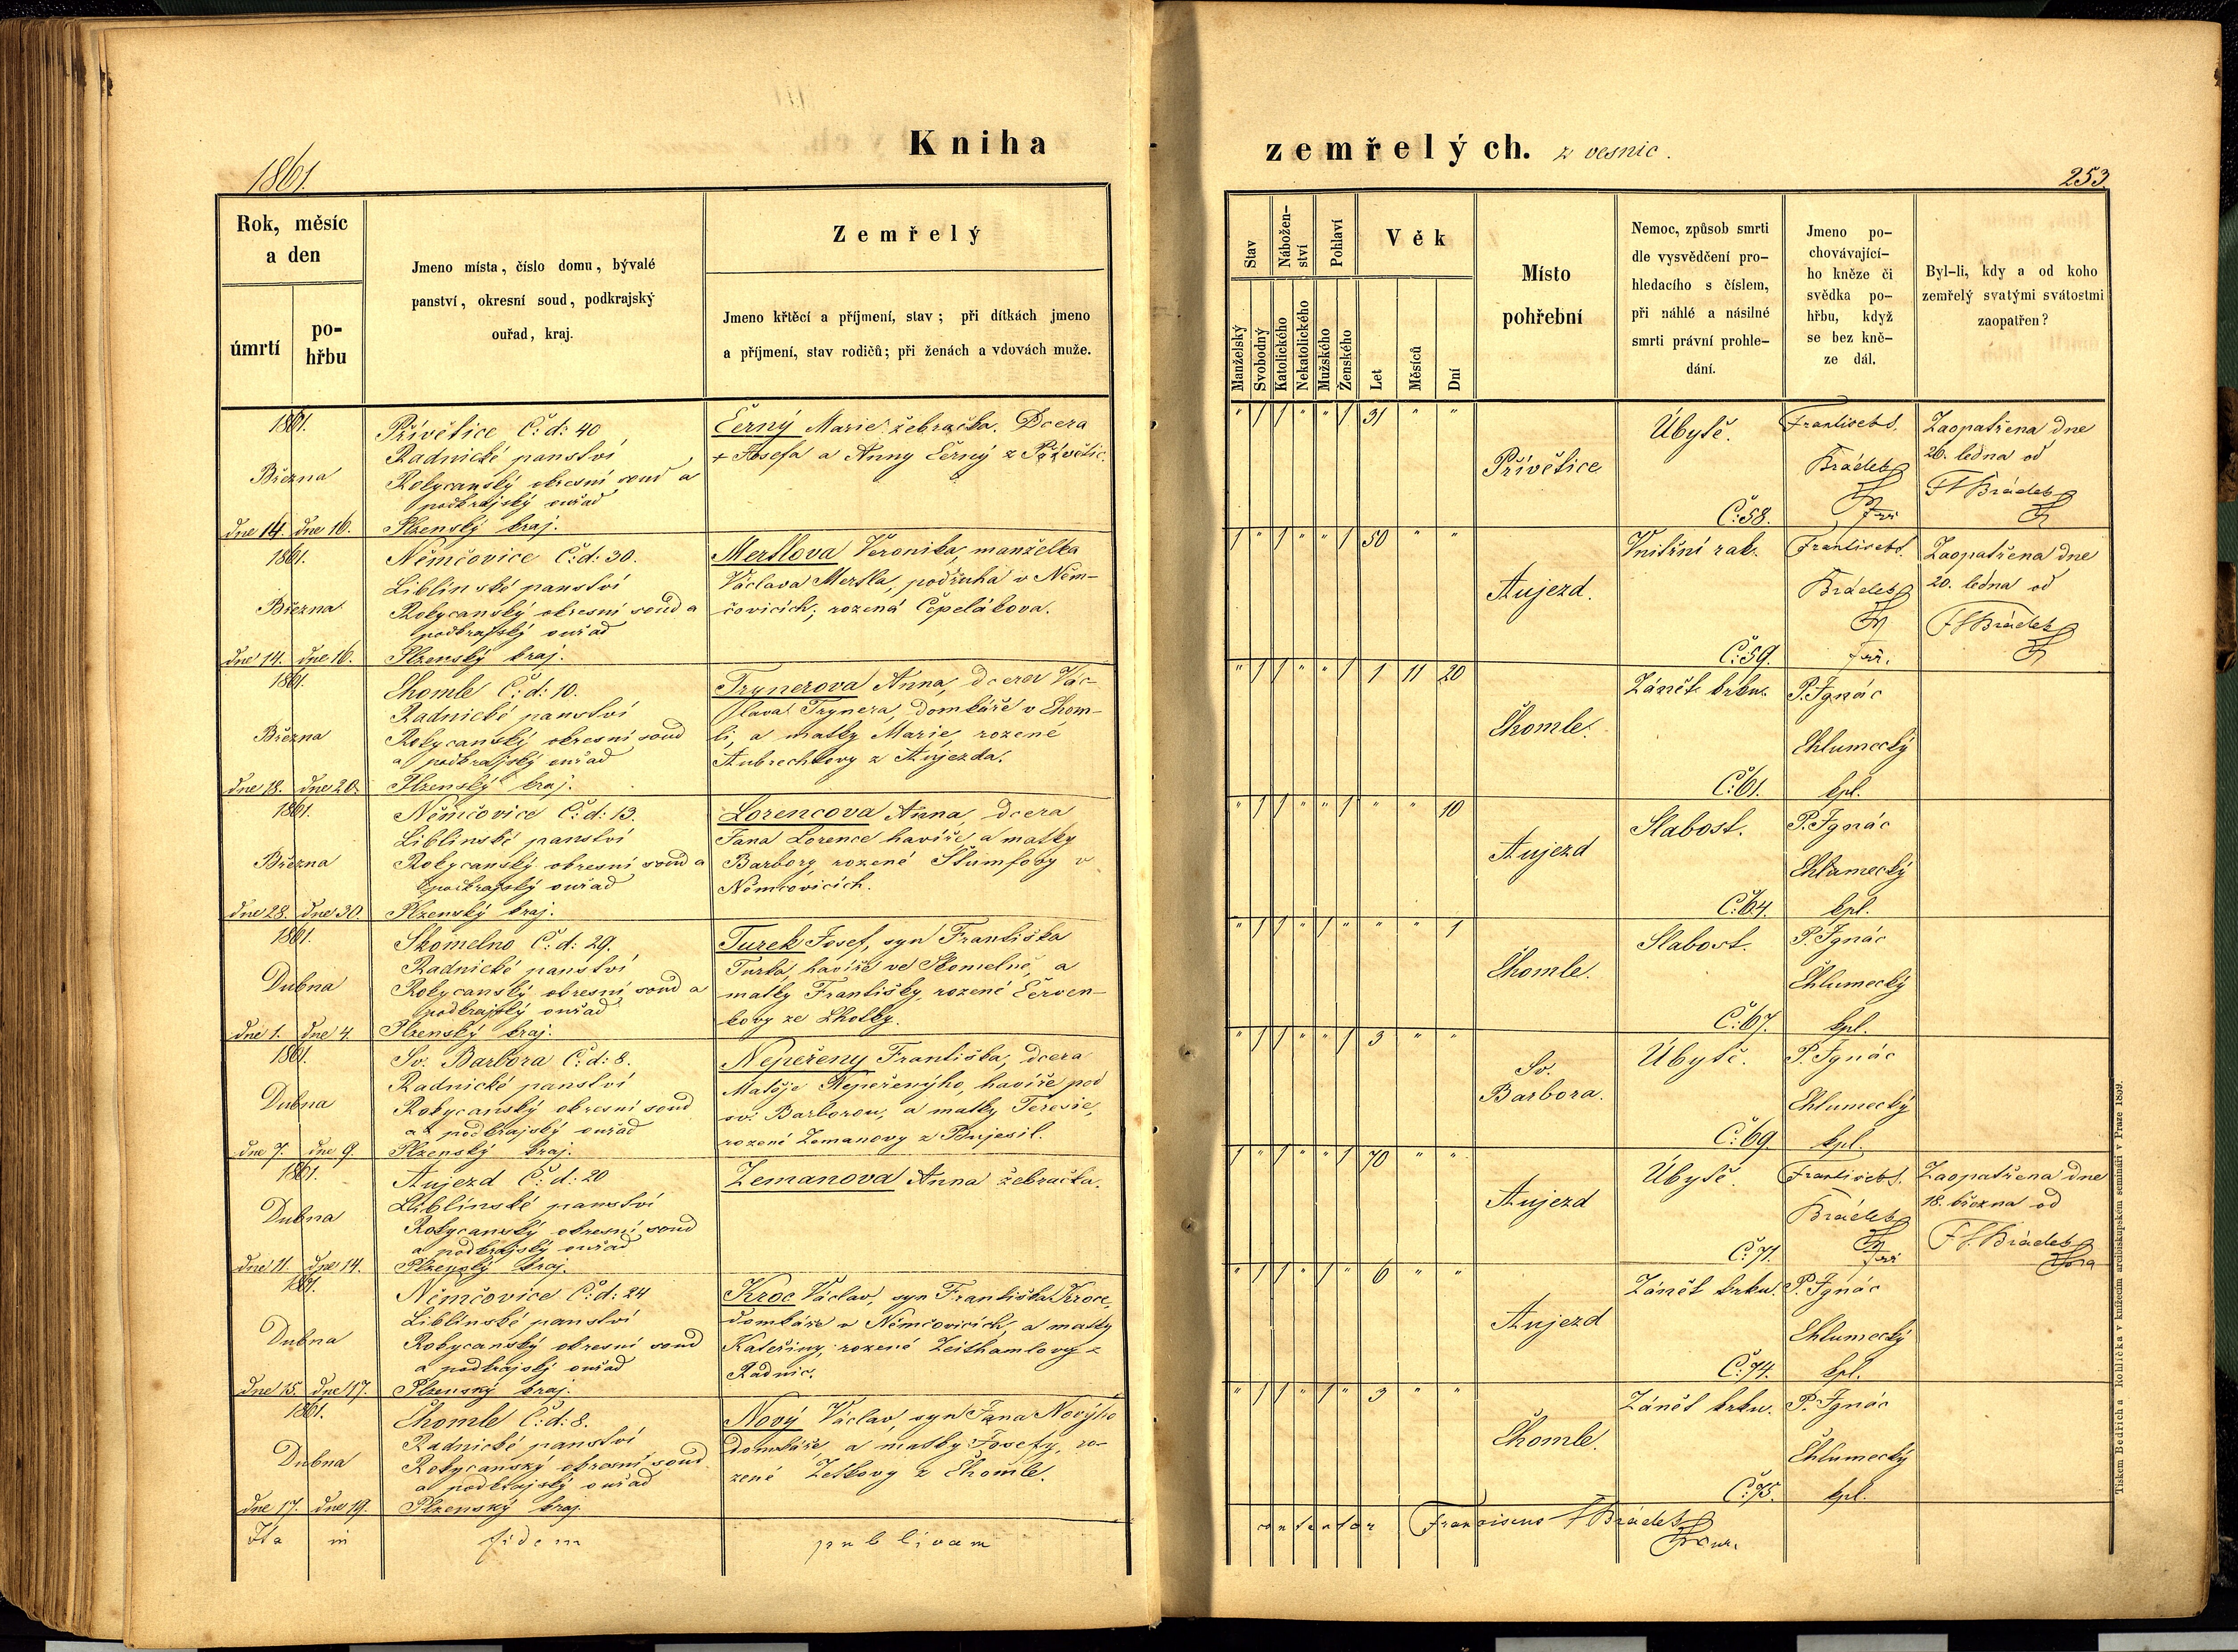 Kniha
zemřelých. z vesnic.
1861.
253.
Rok, měsíc
a den
úmrtí
po-
hřbu
Jmeno místa, číslo domu, bývalé
panství, okresní soud, podkrajský
ouřad, kraj.
Zemřelý
Jmeno křtěcí a příjmení, stav; při dítkách jmeno
a příjmení, stav rodičů; při ženách a vdovách muže.
Stav
Nábožen-
ství
Pohlaví
Věk
Manželský
Svobodný
Katolického
Nekatolického
Mužského
Ženského
Let
Měsíců
Dní
Místo
pohřební
Nemoc, způsob smrti
dle vysvědčení pro-
hledacího s číslem,
při náhlé a násilné
smrti právní prohle-
dání.
Jmeno po-
chovávající-
ho kněze či
svědka po-
hřbu, když
se bez kně-
ze dál.
Byl-li, kdy a od koho
zemřelý svatými svátostmi
zaopatřen?
1861.
Března
dne 14. dne 16.
Přívětice Č: d: 40
Radnické panství
Rokycanský okresní soud a
podkrajský ouřad
Plzenský kraj.
Černý Marie žebračka. Dcera
+ Josefa a Anny Černý z Přívětic.
" 1 1 " " 1 31 " "
Přívětice
Úbytě.
Č: 58.
Frantisek S.
Brádek
farř
Zaopatřena dne
26. ledna od
FS Brádek
1861.
Března
dne 14. dne 16.
Němčovice Č: d: 30.
Liblinské panství
Rokycanský okresní soud a
podkrajský ouřad
Plzenský kraj.
Mertlova Veronika, manželka
Václava Mertla, podruha v Něm-
čovicích; rozená Čepelákova.
1 " 1 " " 1 50 " "
Aujezd.
Vnitřní rak.
Č: 59.
Frantisek S.
Brádek
farř.
Zaopatřena dne
20. ledna od
FS Brádek
1861.
Března
dne 18. dne 20.
Chomle Č: d: 10.
Radnické panství
Rokycanský okresní soud
a podkrajský ouřad
Plzenský kraj.
Trynerova Anna, dcera Vác-
lava Trynera, domkáře v Chom-
li, a matky Marie, rozené
Aubrechtovy z Aujezda.
" 1 1 " " 1 1 11 20
Chomle.
Zánět krku.
Č: 61.
P. Ignác
Chlumecký
kpl.
1861.
Března
dne 28. dne 30.
Němčovice Č: d: 13.
Liblinské panství
Rokycanský okresní soud a
podkrajský ouřad
Plzenský kraj.
Lorencova Anna, dcera
Jana Lorence havíře, a matky
Barbory, rozené Štumfovy v
Němčovicích.
" 1 1 " " 1 " " 10
Aujezd
Slabost.
Č: 64.
P. Ignác
Chlumecký
kpl.
1861.
Dubna
dne 1. dne 4.
Skomelno Č: d: 29.
Radnické panství
Rokycanský okresní soud a
podkrajský ouřad
Plzenský kraj.
Turek Josef, syn Františka
Turka, havíře ve Skomelně, a
matky Františky, rozené Červen-
kovy ze Lhotky.
" 1 1 " 1 " " " 1
Chomle.
Slabost.
Č: 67.
P. Ignác
Chlumecký
kpl.
1861.
Dubna
dne 7. dne 9.
Sv. Barbora Č: d: 8.
Radnické panství
Rokycanský okresní soud
a podkrajský ouřad
Plzenský kraj.
Nepeřeny Františka, dcera
Matěje Nepeřenýho, havíře pod
sv. Barborou, a matky Terezie,
rozené Zemanovy z Bujesil.
" 1 1 " " 1 3 " "
Sv.
Barbora.
Úbytě.
Č: 69.
P. Ignác
Chlumecký
kpl.
1861.
Dubna
dne 11. dne 14.
Aujezd Č: d: 20
Liblinské panství
Rokycanský okresní soud
a podkrajský ouřad
Plzenský kraj.
Zemanova Anna žebračka.
1 " 1 " " 1 70 " "
Aujezd
Úbytě.
Č: 71.
Frantisek S.
Brádek
farř
Zaopatřena dne
18. března od
FS. Brádek
1861.
Dubna
dne 15. dne 17.
Němčovice Č: d: 24
Liblinské panství
Rokycanský okresní soud
a podkrajský ouřad
Plzenský kraj.
Kroc Václav, syn Františka Kroce,
domkáře v Němčovicích, a matky
Kateřiny, rozené Zeithamlovy z
Radnic.
" 1 1 " 1 " 6 " "
Aujezd
Zánět krku.
Č: 74.
P. Ignác
Chlumecký
kpl.
1861.
Dubna
dne 17. dne 19.
Chomle Č: d: 8.
Radnické panství
Rokycanský okresní soud
a podkrajský ouřad
Plzenský kraj.
Nový Václav, syn Jana Novýho
domkáře, a matky Josefy, ro-
zené Zelkovy z Chomle.
" 1 1 " 1 " 3 " "
Chomle.
Zánět krku.
Č: 75.
P. Ignác
Chlumecký
kpl.
Ita in fidem publicam
contentor Franciscus S Brádek
Tiskem Bedřicha Rohlíčka v knížecím arcibiskupském semináři v Praze 1859.